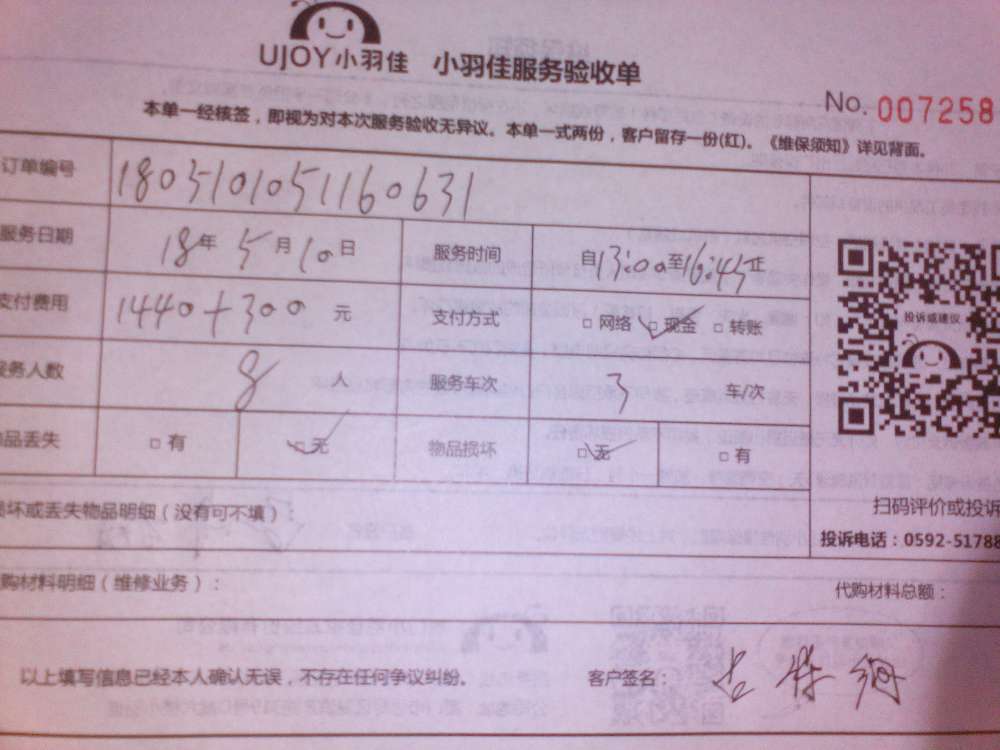 UJOY小羽佳 小羽佳服务验收单
No. 007258
本单一经核签，即视为对本次服务验收无异议。本单一式两份，客户留存一份(红)。《维保须知》详见背面。
订单编号 1805101051160631
服务日期 18年5月10日 服务时间 自13:00至16:45止
支付费用 1440+300 元 支付方式 □网络 □现金 □转账
服务人数 8 人 服务车次 3 车/次
物品丢失 □有 □无 物品损坏 □无 □有
投诉或建议
损坏或丢失物品明细（没有可不填）：
扫码评价或投诉
投诉电话：0592-51788
购材料明细（维修业务）：
代购材料总额：
以上填写信息已经本人确认无误，不存在任何争议纠纷。 客户签名：